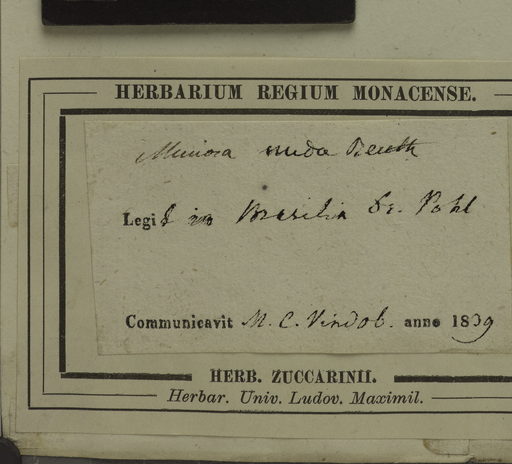 HERBARIUM REGIUM MONACENSE.
Mimosa nuda Benth
Legit in Brasilia Dr. Pohl
Communicavit M. C. Vindob. anno 1839
HERB. ZUCCARINII.
Herbar. Univ. Ludov. Maximil.